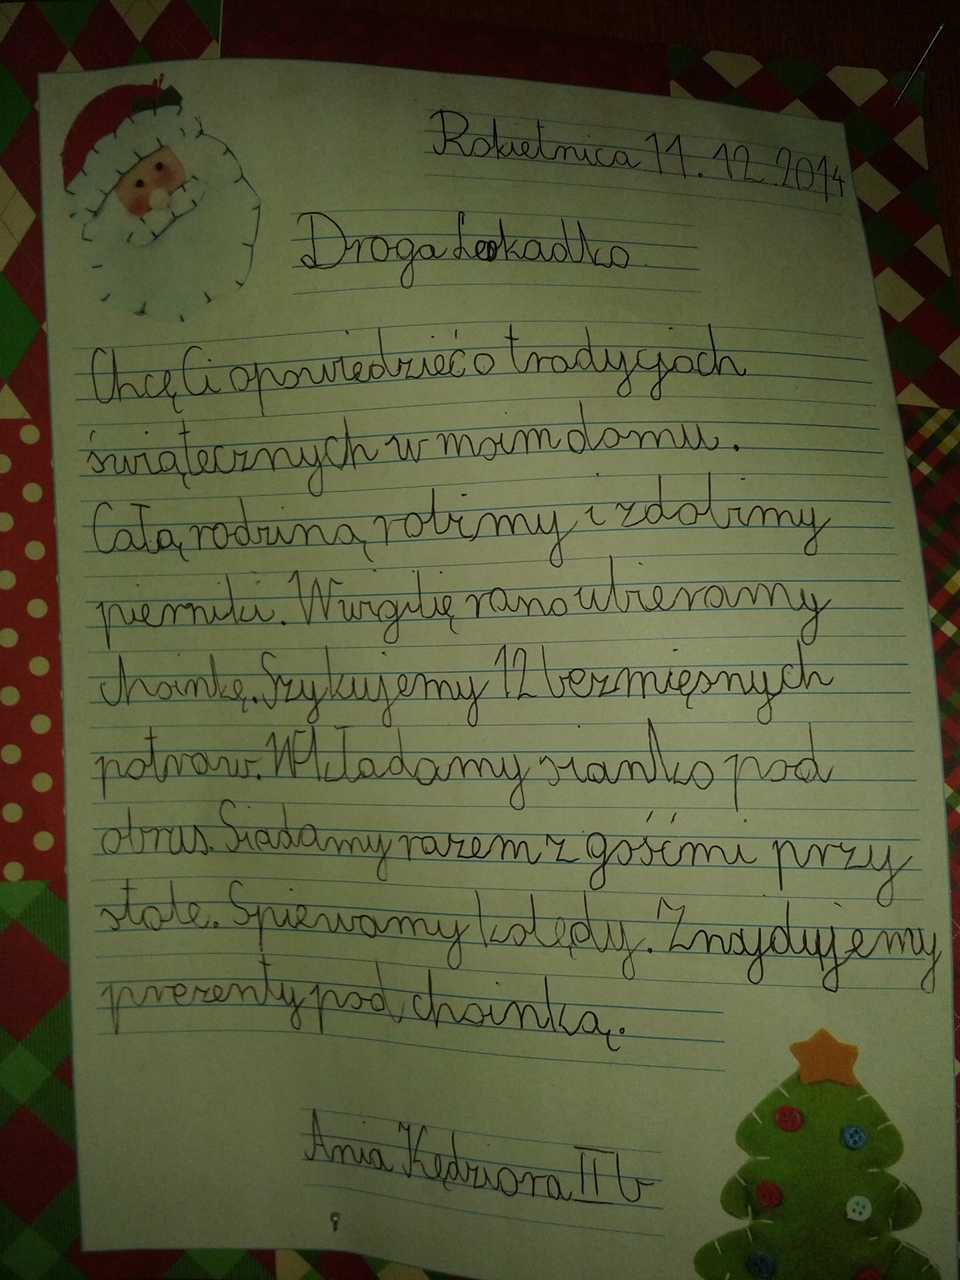 Rokietnica 11.12.2014
Droga Leokadko
Chcę Ci opowiedzieć o tradycjach
świątecznych w moim domu.
Całą rodziną robimy i zdobimy
pierniki. W wigilię rano ubieramy
choinkę. Szykujemy 12 bezmięsnych
potraw. Wkładamy sianko pod
obrus. Siadamy razem z gośćmi przy
stole. Spiewamy kolędy. Znajdujemy
prezenty pod choinką.
Ania Kędziora II b